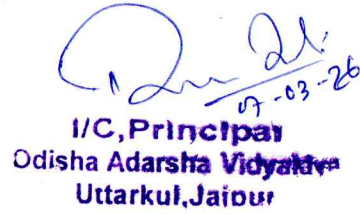 07-03-26
I/C, Principal
Odisha Adarsha Vidyalaya
Uttarkul, Jajpur